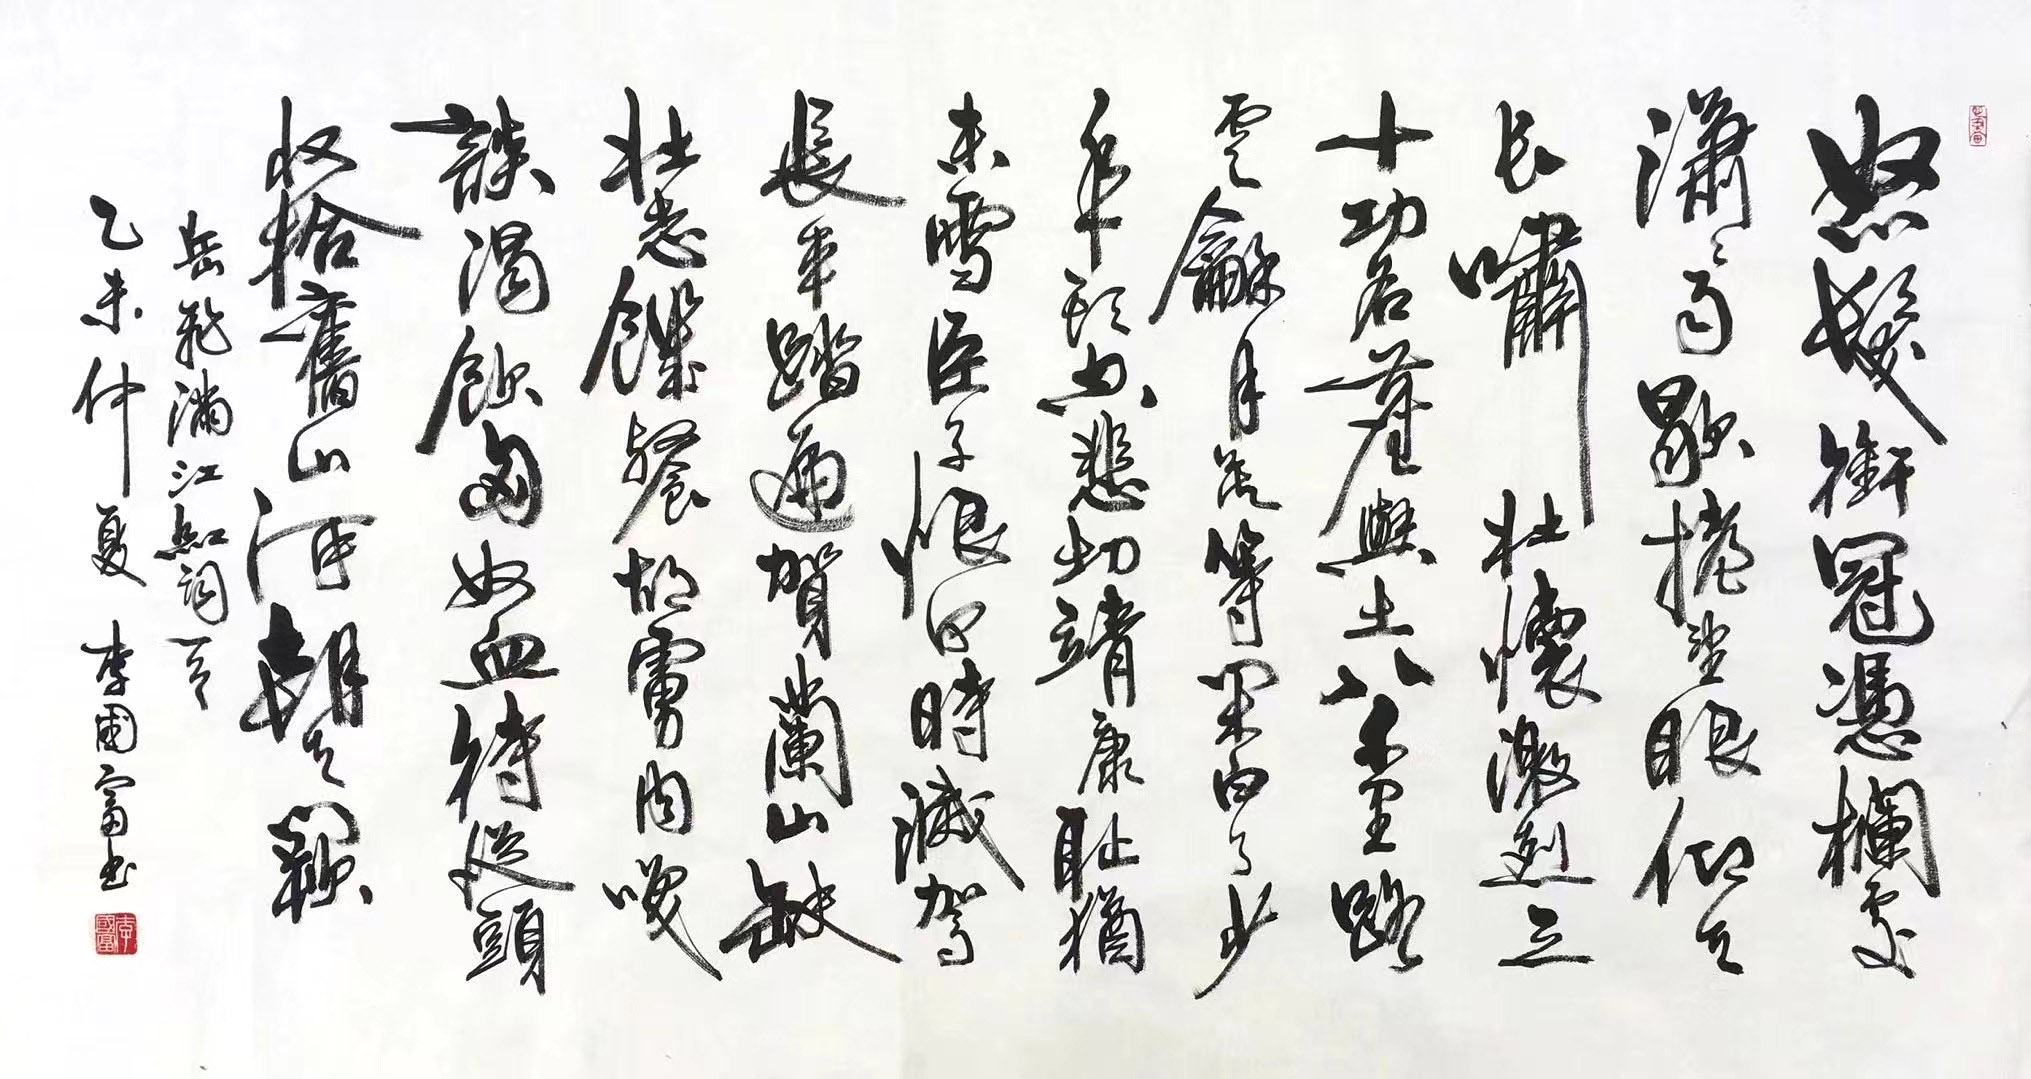 怒髮衝冠憑欄處
瀟々雨歇抬望眼仰天
长嘯壯懷激烈三
十功名塵與土八千里路
雲龢月莫等閑白了少
年頭空悲切靖康恥猶
未雪臣子恨何時滅駕
長車踏遍賀蘭山缺
壯志饑餐胡虜肉笑
談渴飲匈奴血待從頭
收拾舊山河朝天闕
岳飛滿江紅詞一首
乙未仲夏 李國富书
李國富